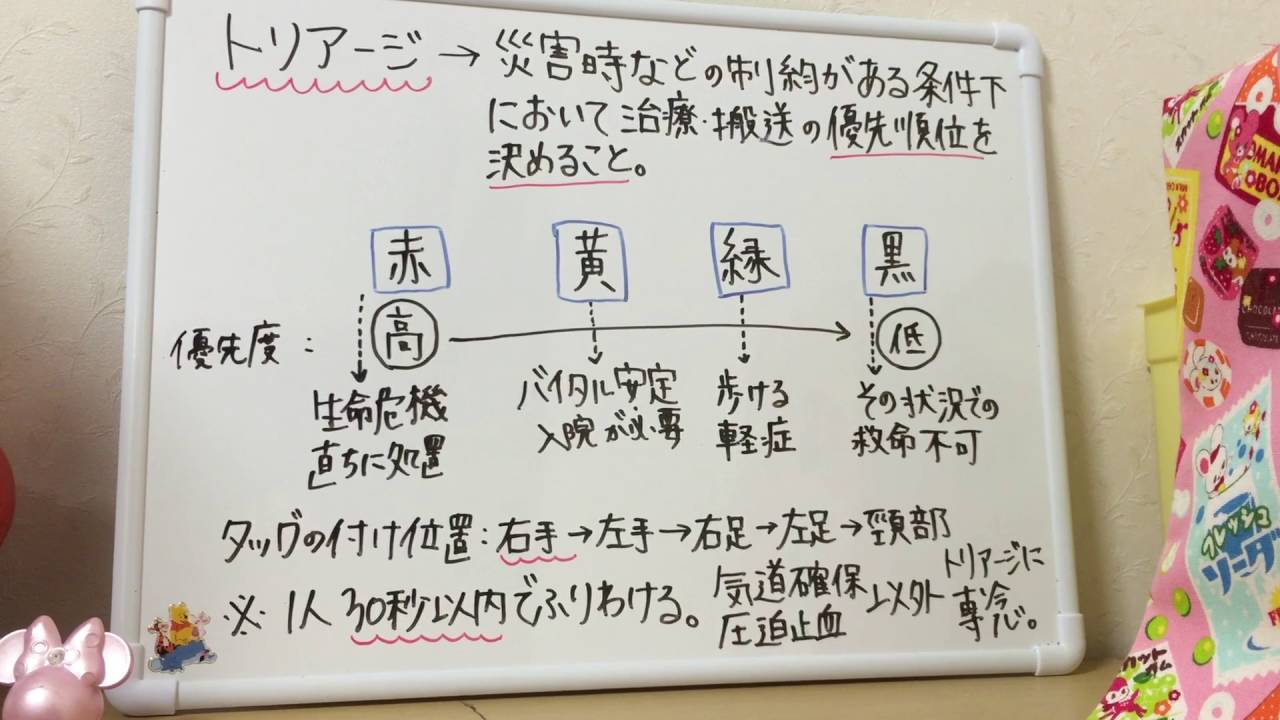 トリアージ → 災害時などの制約がある条件下
において治療・搬送の優先順位を
決めること。
赤 黄 緑 黒
優先度: 高 → 低
生命危機
直ちに処置
バイタル安定
入院が必要
歩ける
軽症
その状況での
救命不可
タッグの付け位置:右手→左手→右足→左足→頸部
※ 1人30秒以内でふりわける。
気道確保
圧迫止血
以外
トリアージに
専念。
スカットガム
CHOCOLATE
フレッシュ
ソーダ
スカット
ガム